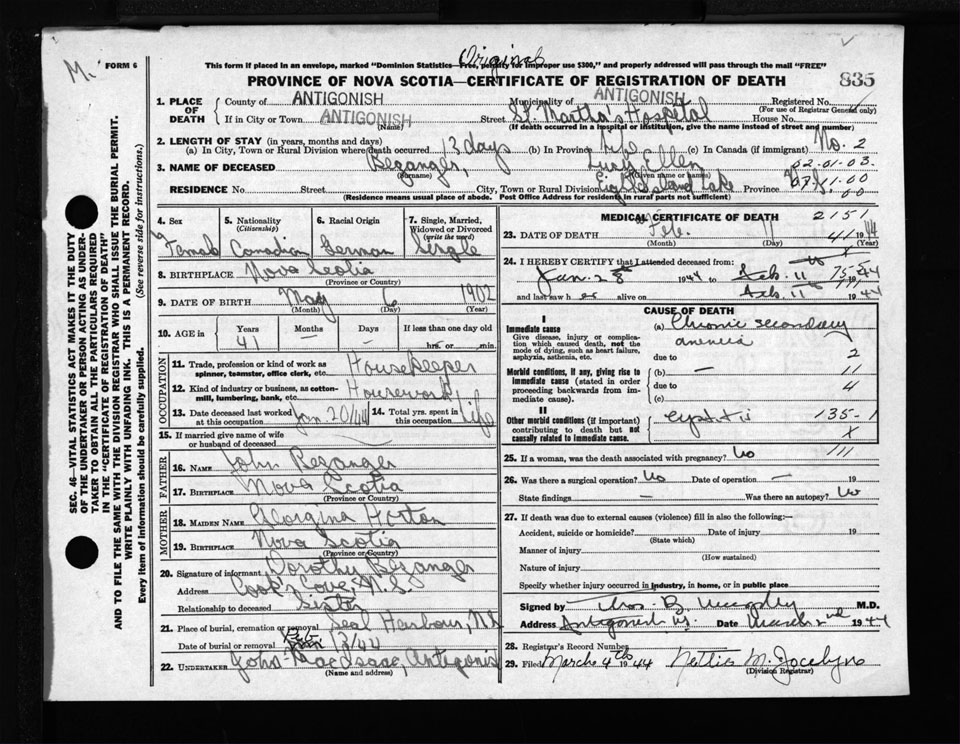 M.
FORM 6
Original
This form if placed in an envelope, marked "Dominion Statistics—Free, penalty for improper use $300," and properly addressed will pass through the mail "FREE"
PROVINCE OF NOVA SCOTIA—CERTIFICATE OF REGISTRATION OF DEATH
835
1. PLACE OF DEATH
County of ANTIGONISH Municipality of ANTIGONISH Registered No.
(For use of Registrar General only)
If in City or Town ANTIGONISH Street St. Martha's Hospital House No.
(Name) (If death occurred in a hospital or institution, give the name instead of street and number)
2. LENGTH OF STAY (in years, months and days)
(a) In City, Town or Rural Division where death occurred 13 days (b) In Province life (c) In Canada (if immigrant) No. 2
3. NAME OF DECEASED Bezanger, Lucy Ellen 02.01.03.
(Surname) (Given name or names)
RESIDENCE No. Street City, Town or Rural Division Lake Province N.S.
(Residence means usual place of abode. Post Office Address for residents in rural parts not sufficient)
4. Sex Female
5. Nationality (Citizenship) Canadian
6. Racial Origin German
7. Single, Married, Widowed or Divorced (write the word) Single
8. BIRTHPLACE Nova Scotia
(Province or Country)
9. DATE OF BIRTH May 6 1902
(Month) (Day) (Year)
10. AGE in Years Months Days If less than one day old
41 — — hrs. or min.
OCCUPATION
11. Trade, profession or kind of work as spinner, teamster, office clerk, etc. Housekeeper
12. Kind of industry or business, as cotton-mill, lumbering, bank, etc. Housework
13. Date deceased last worked at this occupation Jan 20/44 14. Total yrs. spent in this occupation Life
15. If married give name of wife or husband of deceased
FATHER
16. NAME John Bezanger
17. BIRTHPLACE Nova Scotia
(Province or Country)
MOTHER
18. MAIDEN NAME Georgina Horton
19. BIRTHPLACE Nova Scotia
(Province or Country)
20. Signature of informant Dorothy Bezanger
Address Cook's Cove, N.S.
Relationship to deceased Sister
21. Place of burial, cremation or removal Seal Harbour, N.S.
Date of burial or removal Feb 13/44
22. UNDERTAKER John MacIsaac, Antigonish
(Name and address)
MEDICAL CERTIFICATE OF DEATH 2151
23. DATE OF DEATH Feb. 11 1944
(Month) (Day) (Year)
24. I HEREBY CERTIFY that I attended deceased from:
Jan. 28 1944 to Feb. 11th 1944
and last saw her alive on Feb. 11th 1944
CAUSE OF DEATH
I
Immediate cause
Give disease, injury or complication which caused death, not the mode of dying, such as heart failure, asphyxia, asthenia, etc.
(a) Chronic secondary anemia
due to 2
Morbid conditions, if any, giving rise to immediate cause (stated in order proceeding backwards from immediate cause).
(b) — 11
due to 4
(c)
II
Other morbid conditions (if important) contributing to death but not causally related to immediate cause.
Cystitis 135-1
X
25. If a woman, was the death associated with pregnancy? No 111
26. Was there a surgical operation? No Date of operation —
State findings — Was there an autopsy? No
27. If death was due to external causes (violence) fill in also the following:—
Accident, suicide or homicide? Date of injury 19
(State which)
Manner of injury
(How sustained)
Nature of injury
Specify whether injury occurred in industry, in home, or in public place
Signed by Thos. B. M.D.
Address Antigonish Date March 2nd 1944
28. Registrar's Record Number
29. Filed March 4th 1944 Nettie M. Jocelyn
(Division Registrar)
SEC. 46—VITAL STATISTICS ACT MAKES IT THE DUTY
OF THE UNDERTAKER OR PERSON ACTING AS UNDER-
TAKER TO OBTAIN ALL THE PARTICULARS REQUIRED
IN THE "CERTIFICATE OF REGISTRATION OF DEATH"
AND TO FILE THE SAME WITH THE DIVISION REGISTRAR WHO SHALL ISSUE THE BURIAL PERMIT.
WRITE PLAINLY WITH UNFADING INK. THIS IS A PERMANENT RECORD.
Every item of information should be carefully supplied. (See reverse side for instructions.)